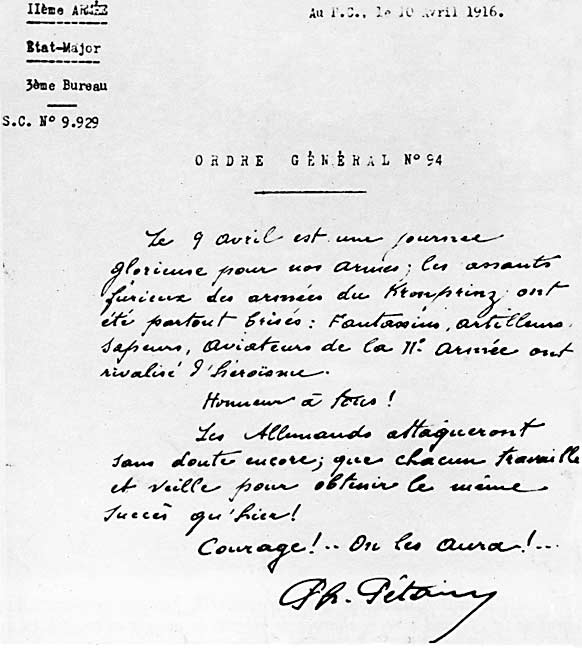 IIème ARMÉE
Au P.C., le 10 Avril 1916.
Etat-Major
3ème Bureau
S.C. N° 9.929
ORDRE GÉNÉRAL N° 94
Le 9 avril est une journée
glorieuse pour nos armes; les assauts
furieux des armées du Kronprinz ont
été partout brisés: Fantassins, artilleurs,
sapeurs, aviateurs de la IIe Armée ont
rivalisé d'héroïsme.
Honneur à tous!
Les Allemands attaqueront
sans doute encore; que chacun travaille
et veille pour obtenir le même
succès qu'hier!
Courage!.. On les aura!...
Ph. Pétain